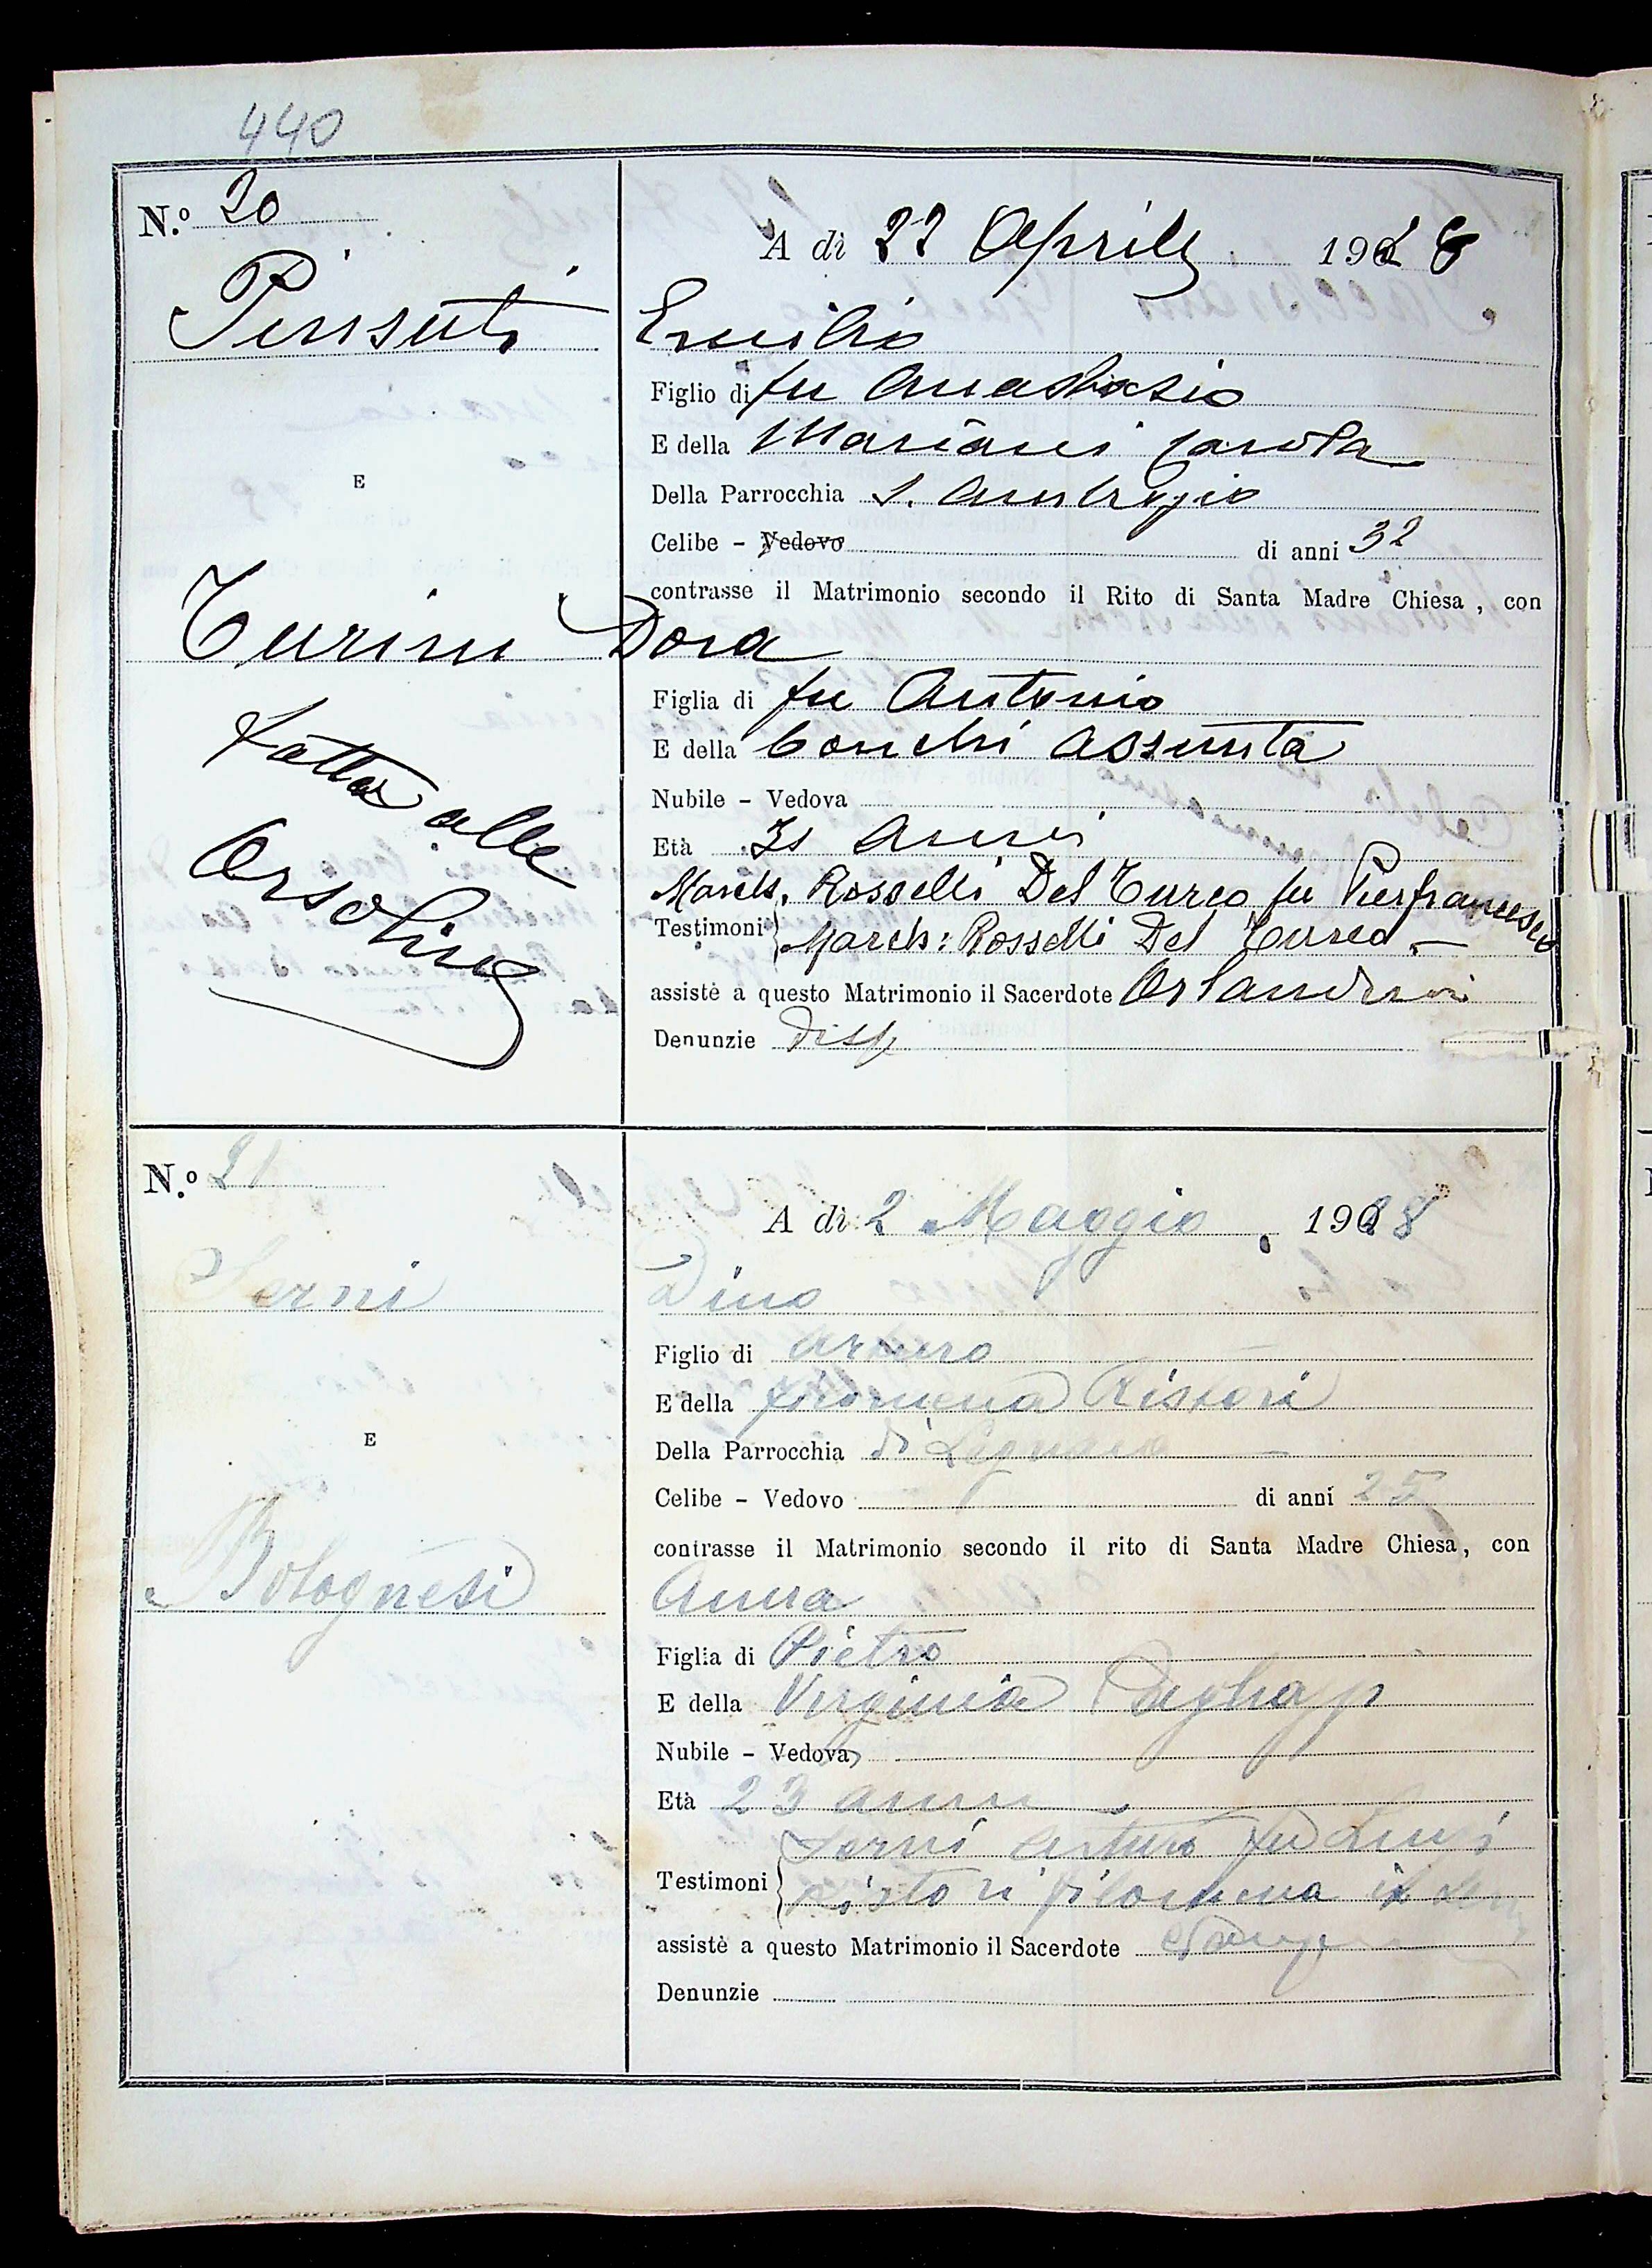 440
N.º 20
A dì 22 Aprile 1928
Pinsuti
Emilio
Figlio di fu Anastasio
E della Mariani Carola
E
Della Parrocchia S. Ambrogio
Celibe - Vedovo di anni 32
contrasse il Matrimonio secondo il Rito di Santa Madre Chiesa, con
Turini Dora
Figlia di fu Antonio
E della Conchi Assunta
Fatto alle
Orsoline
Nubile - Vedova
Età 31 Anni
March. Rosselli Del Turco fu Pierfrancesco
Testimoni March: Rosselli Del Turco
assistè a questo Matrimonio il Sacerdote Orlandini
Denunzie disp
N.º 21
A dì 2 Maggio 1928
Serni
Dino
Figlio di Arturo
E della Filomena Ristori
E
Della Parrocchia di Legnaia
Celibe - Vedovo di anni 25
contrasse il Matrimonio secondo il rito di Santa Madre Chiesa, con
Bolognesi
Anna
Figlia di Pietro
E della Virginia
Nubile - Vedova
Età 23 anni
Serni Arturo fu Luigi
Testimoni Ristori Filomena
assistè a questo Matrimonio il Sacerdote
Denunzie